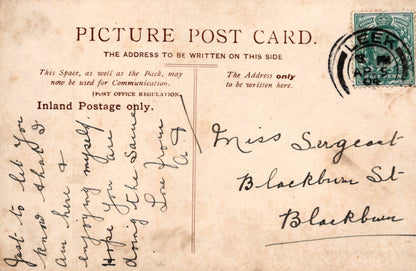 PICTURE POST CARD.
THE ADDRESS TO BE WRITTEN ON THIS SIDE
This Space, as well as the Back, may
now be used for Communication.
(POST OFFICE REGULATION)
Inland Postage only.
The Address only
to be written here.
LEEK
Just to let you
know that I
am here &
enjoying myself.
Hope you are
doing the same
Love from
Miss Sergeant
Blackburn St
Blackburn